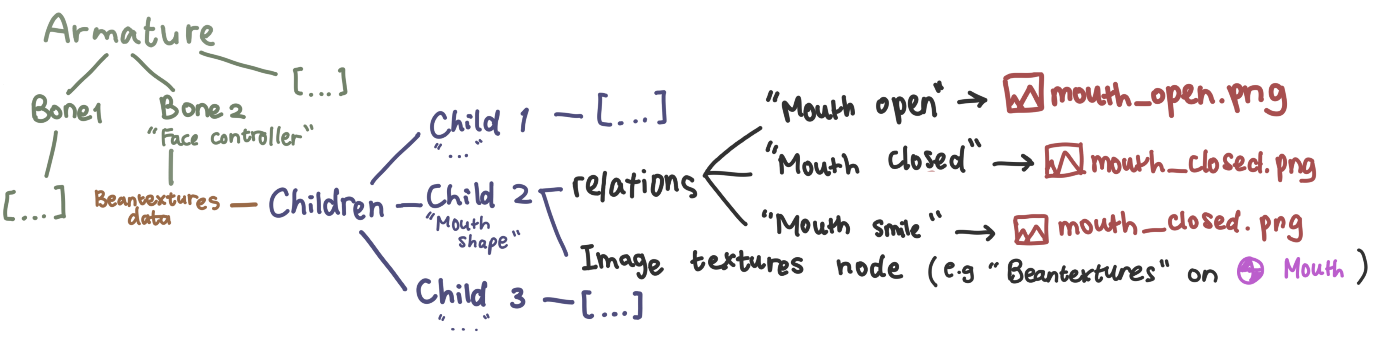 Armature
Bone1
Bone 2
"Face controller"
[...]
[...]
Beantextures
data
Children
Child 1
"..."
[...]
Child 2
"Mouth
shape"
Child 3
"...."
[...]
relations
"Mouth open" → mouth_open.png
"Mouth closed" → mouth_closed.png
"Mouth smile" → mouth_closed.png
Image textures node (e.g "Beantextures" on Mouth)